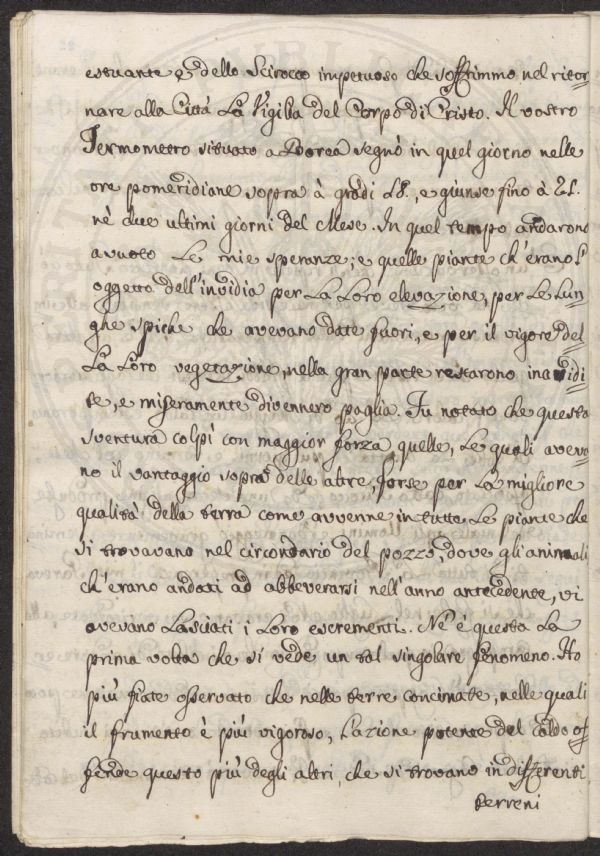 estuante e dello Scirocco impetuoso che soffrimmo nel ritor=
nare alla Città La Vigilia del Corpo di Cristo. Il vostro
Termometro situato a Borea segnò in quel giorno nelle
ore pomeridiane sopra à gradi 28., e giunse fino à 21.
nè due ultimi giorni del Mese. In quel tempo andarono
avuoto Le mie speranze; e quelle piante ch'erano l'
oggetto dell'invidia per La Loro elevazione, per Le Lun=
ghe spiche che avevano date fuori, e per il vigore del=
La Loro vegetazione, nella gran parte restarono inaridi=
te, e miseramente divennero paglia. Fu notato che questa
sventura colpì con maggior forza quelle, Le quali aveva=
no il vantaggio sopra delle altre, forse per La migliore
qualità della terra come avvenne in tutte Le piante che
si trovavano nel circondario del pozzo, dove gli animali
ch'erano andati ad abbeverarsi nell'anno antecedente, vi
avevano Lasciati i Loro escrementi. Nè è questa La
prima volta che si vede un tal singolare fenomeno. Ho
più fiate osservato che nelle terre concimate, nelle quali
il frumento è più vigoroso, l'azione potente del Caldo of=
fende questo più degli altri, che si trovano in differenti
terreni